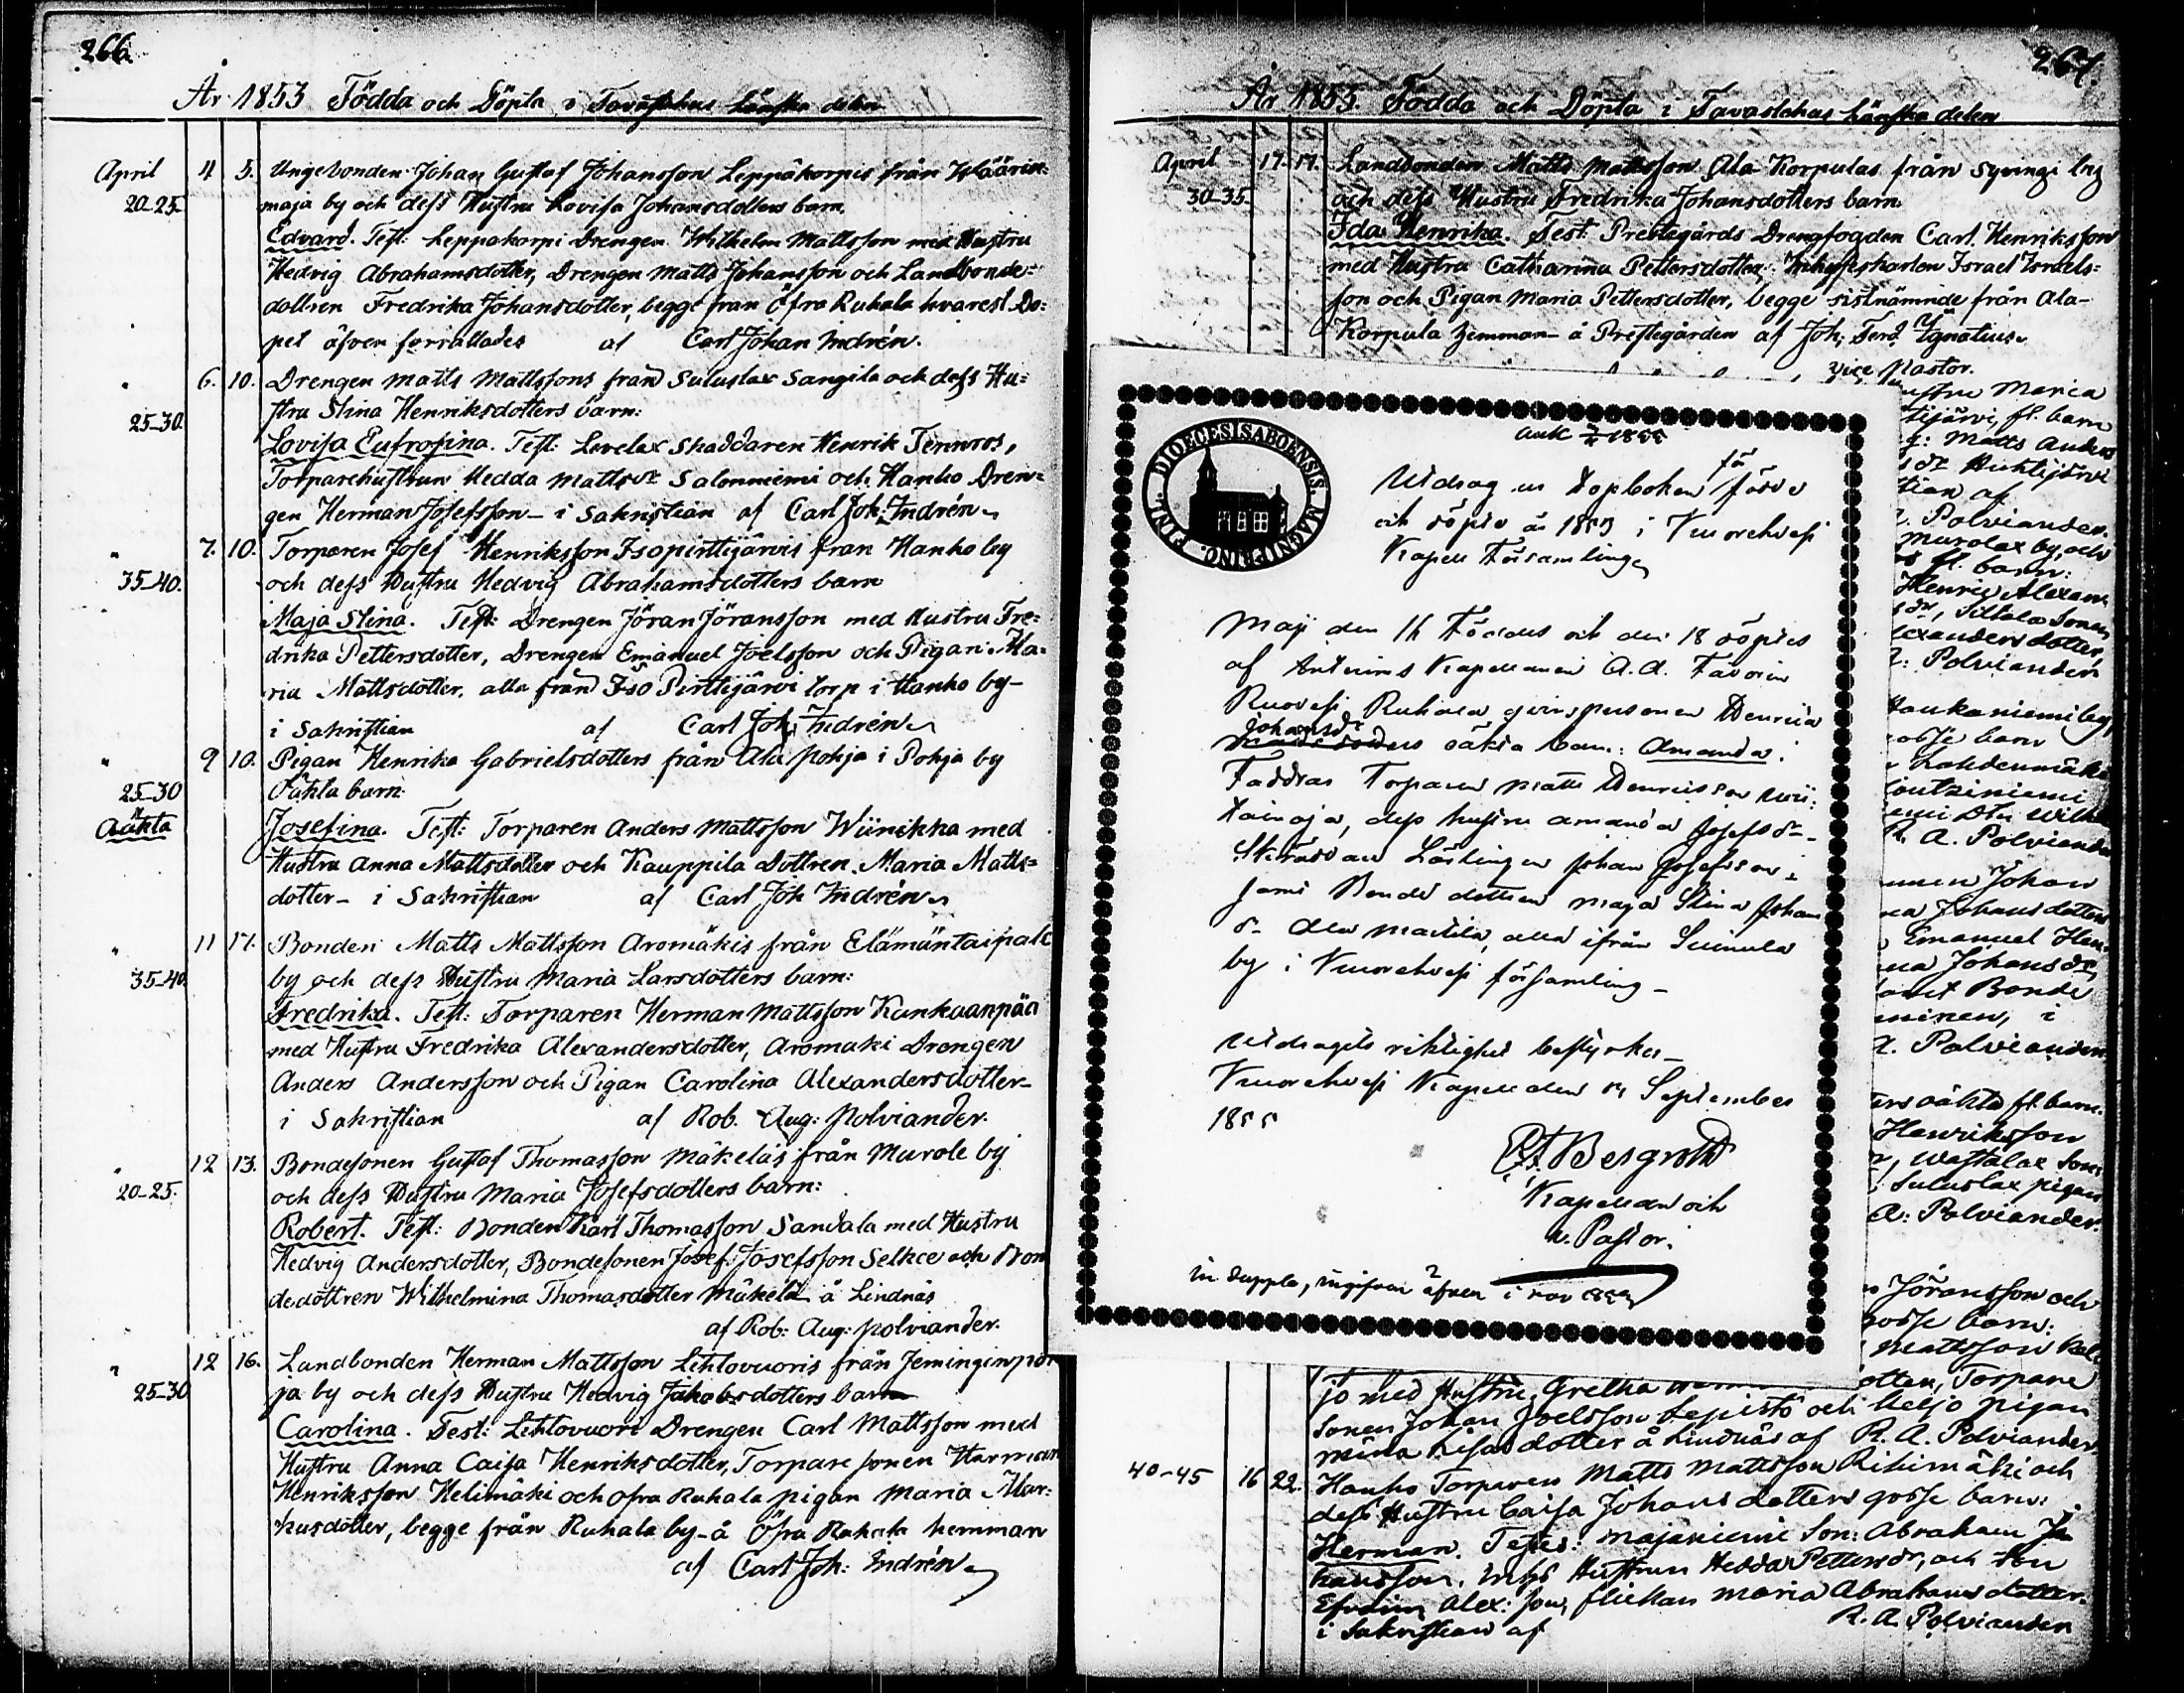 266.
År 1853 Födda och Döpta i Tavastehus Länska delen
April 4 5. Ungebonden Johan Gustaf Johansson Leppäkorpis från Wäärin=
20-25. maja by och dess Hustru Lovisa Johansdotters barn.
Edvard. Test: Leppäkorpi Drengen Wilhelm Mattsson med Hustru
Hedvig Abrahamsdotter, Drengen Matts Johansson och Landbonde=
dottren Fredrika Johansdotter, begge från Öfra Ruhala hvarest Do=
pet äfven förrättades af Carl Johan Indrén.
" 6. 10. Drengen Matts Mattssons från Suluslax Sangila och dess Hu=
25-30. stru Stina Henriksdotters barn:
Lovisa Eufrosina. Test: Lovelax Skaddaren Henrik Tennroos,
Torparehustrun Hedda Mattsdr Salonniemi och Hanho Dren=
gen Herman Josefsson - i Sakristian af Carl Joh: Indrén
" 7. 10. Torparen Josef Henriksson Isopirttijärvis från Hanho by
35-40. och dess Hustru Hedvig Abrahamsdotters barn
Maja Stina. Test: Drengen Jöran Jöransson med Hustru Fre=
drika Pettersdotter, Drengen Emanuel Joelsson och Pigan Ma=
ria Mattsdotter, alla från Iso Pirttijärvi torp i Hanho by -
i Sakristian af Carl Joh: Indrén
" 9 10. Pigan Henrika Gabrielsdotters från Ala Pohja i Pohja by
25-30 Oäkta barn:
Oäkta Josefina. Test: Torparen Anders Mattsson Wiinikka med
Hustru Anna Mattsdotter och Kauppila Dottren Maria Matts=
dotter - i Sakristian af Carl Joh Indrén
" 11 17. Bonden Matts Mattsson Aromäkis från Elämäntaipale
35-40. by och dess Hustru Maria Larsdotters barn:
Fredrika. Test: Torparen Herman Mattsson Kankaanpää
med Hustru Fredrika Alexandersdotter, Aromäki Drengen
Anders Andersson och Pigan Carolina Alexandersdotter -
i Sakristian af Rob. Aug: Polviander.
" 12 13. Bondesonen Gustaf Thomasson Mäkeläs från Murole by
20-25. och dess Hustru Maria Josefsdotters barn:
Robert. Test: Bonden Karl Thomasson Sandala med Hustru
Hedvig Andersdotter, Bondesonen Josef Josefsson Selkee och Bon
dedottren Wilhelmina Thomasdotter Mäkelä å Lindnäs
af Rob: Aug: Polviander.
" 12 16. Landbonden Herman Mattsson Lehtovuoris från Jäminginpoh
25-30 ja by och dess Hustru Hedvig Jakobsdotters barn
Carolina. Test: Lehtovuori Drengen Carl Mattsson med
Hustru Anna Caisa Henriksdotter, Torpare sonen Herman
Henriksson Helimäki och Öfra Ruhala pigan Maria Mar=
kusdotter, begge från Ruhala by - å Öfra Ruhala hemman
af Carl Joh: Indrén
267.
År 1853. Födda och Döpta i Tavastehus Länska delen
April 17. 17. Landbonden Matts Mattsson Ala-Korpulas från Syvingi by
30-35. och dess Hustru Fredrika Johansdotters barn
Ida Henrika. Test: Prestegårds Drengfogden Carl Henriksson
med Hustru Catharina Pettersdotter, Inhysiskarlen Israel Israels=
son och Pigan Maria Pettersdotter, begge sistnämnde från Ala-
Korpula hemman - å Prestegården af Joh: Ferd. Ignatius.
vice Pastor.
DIOECESIS ABOENSIS. MAGNI PRINC. FINL.
Utdrag ur Dopboken för födde
och döpte år 1853 i Kuorehvesi
Kapell Församling
Maji den 16 Föddes och den 18 döptes
af Interims Kapellanen A. A. Favorin
Ruovesi Ruhala qvinspersonen Henrica
Johansdr
oäkta barn: Amanda.
Faddrar Torparen Matts Henricsson
dess hustru Amanda Josefsdr
Skräddare Lärlingen Johan Josefsson
samt Bonde dottren Maja Stina Johans
dr Ala Mattila, alla ifrån Suinula
by i Kuorehvesi församling -
Utdragets riktighet bestyrker -
Kuorehvesi Kapell den 14 September
1855
Bergroth
Kapellan och
v. Pastor.
ustru Maria
tijärvi, fl. barn
g: Matts Anders
tian af
. Polviander.
Murolax by, och
fl. barn:
Henric Alexan
Siltala Sonen
lexandersdotter
: Polviander
Haukaniemi by
osse barn
R. A. Polviander
Johan
na Johansdotters
Emanuel Hen
na Johansdr,
Bonde
minen, i
A. Polviander
ters oäkta fl. barn.
Henriksson
Suluslax pigan
A: Polviander.
Jöransson och
gosse barn:
Mattsson
jo med Hustru Gretha otter, Torpare
sonen Johan Joelsson Lepistö och Keljo pigan
mina Lisas dotter å Lindnäs af R. A. Polviander
40-45 16 22. Hanho Torparen Matts Mattsson Riihimäki och
dess Hustru Caisa Johansdotters gosse barn:
Herman. Testes: Majaniemi Son: Abraham Jo
hansson, Inhys Hustrun Hedda Pettersdr, och Son
Efraim Alex: son, flickan Maria Abrahamsdotter.
i Sakristian af R. A. Polviander